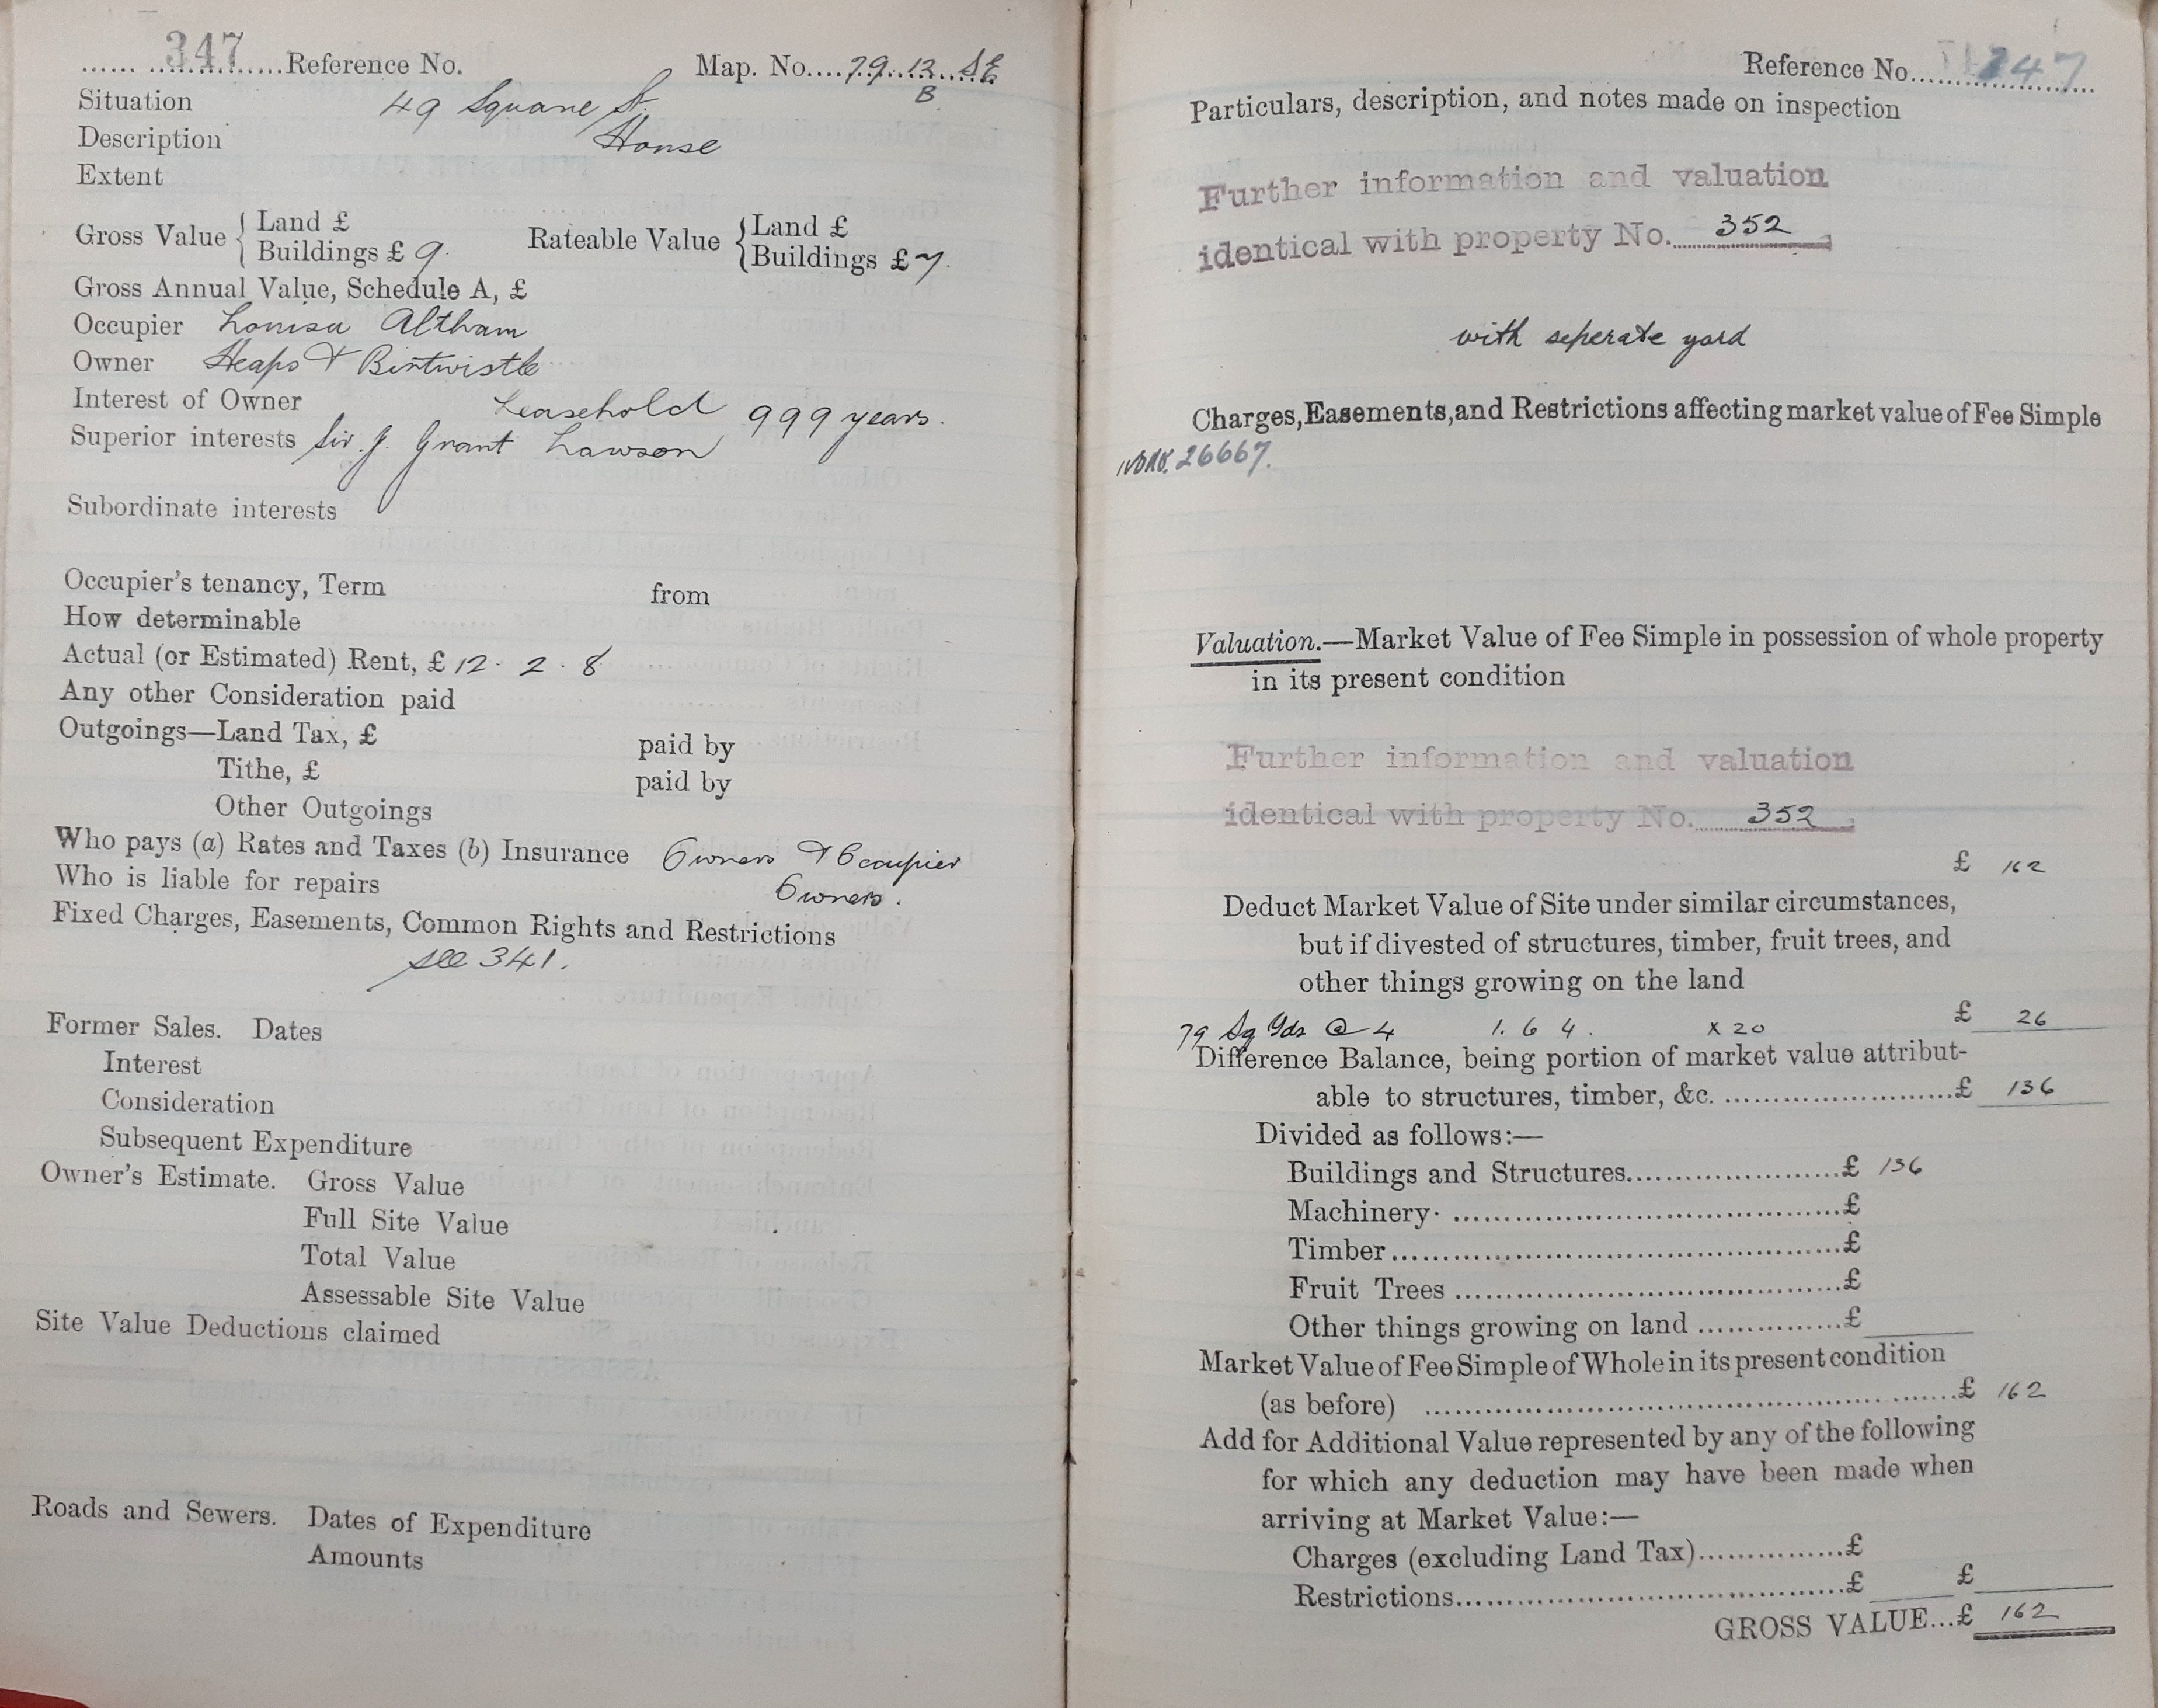 347
...... ..............Reference No. Map. No....79.12.SE
B
Situation 49 Square St.
Description House
Extent
Gross Value { Land £ Rateable Value { Land £
Buildings £ 9. Buildings £ 7.
Gross Annual Value, Schedule A, £
Occupier Louisa Altham
Owner Heaps & Birtwistle
Interest of Owner Leasehold 999 years.
Superior interests Sir. J. Grant Lawson
Subordinate interests
Occupier's tenancy, Term from
How determinable
Actual (or Estimated) Rent, £ 12. 2. 8
Any other Consideration paid
Outgoings—Land Tax, £ paid by
Tithe, £ paid by
Other Outgoings
Who pays (a) Rates and Taxes (b) Insurance Owners & Occupier
Who is liable for repairs Owners.
Fixed Charges, Easements, Common Rights and Restrictions
see 341.
Former Sales. Dates
Interest
Consideration
Subsequent Expenditure
Owner's Estimate. Gross Value
Full Site Value
Total Value
Assessable Site Value
Site Value Deductions claimed
Roads and Sewers. Dates of Expenditure
Amounts
Reference No. 347
Particulars, description, and notes made on inspection
Further information and valuation
identical with property No. 352
with seperate yard
Charges, Easements, and Restrictions affecting market value of Fee Simple
26667.
Valuation.—Market Value of Fee Simple in possession of whole property
in its present condition
Further information and valuation
identical with property No. 352
£ 162
Deduct Market Value of Site under similar circumstances,
but if divested of structures, timber, fruit trees, and
other things growing on the land
79 Sq Yds @ 4 1. 6 4. x 20 £ 26
Difference Balance, being portion of market value attribut-
able to structures, timber, &c. ..........................£ 136
Divided as follows:—
Buildings and Structures........................£ 136
Machinery. ............................................£
Timber..................................................£
Fruit Trees ...........................................£
Other things growing on land ................£
Market Value of Fee Simple of Whole in its present condition
(as before) ......................................................£ 162
Add for Additional Value represented by any of the following
for which any deduction may have been made when
arriving at Market Value:—
Charges (excluding Land Tax)................£
Restrictions...........................................£ £
GROSS VALUE...£ 162